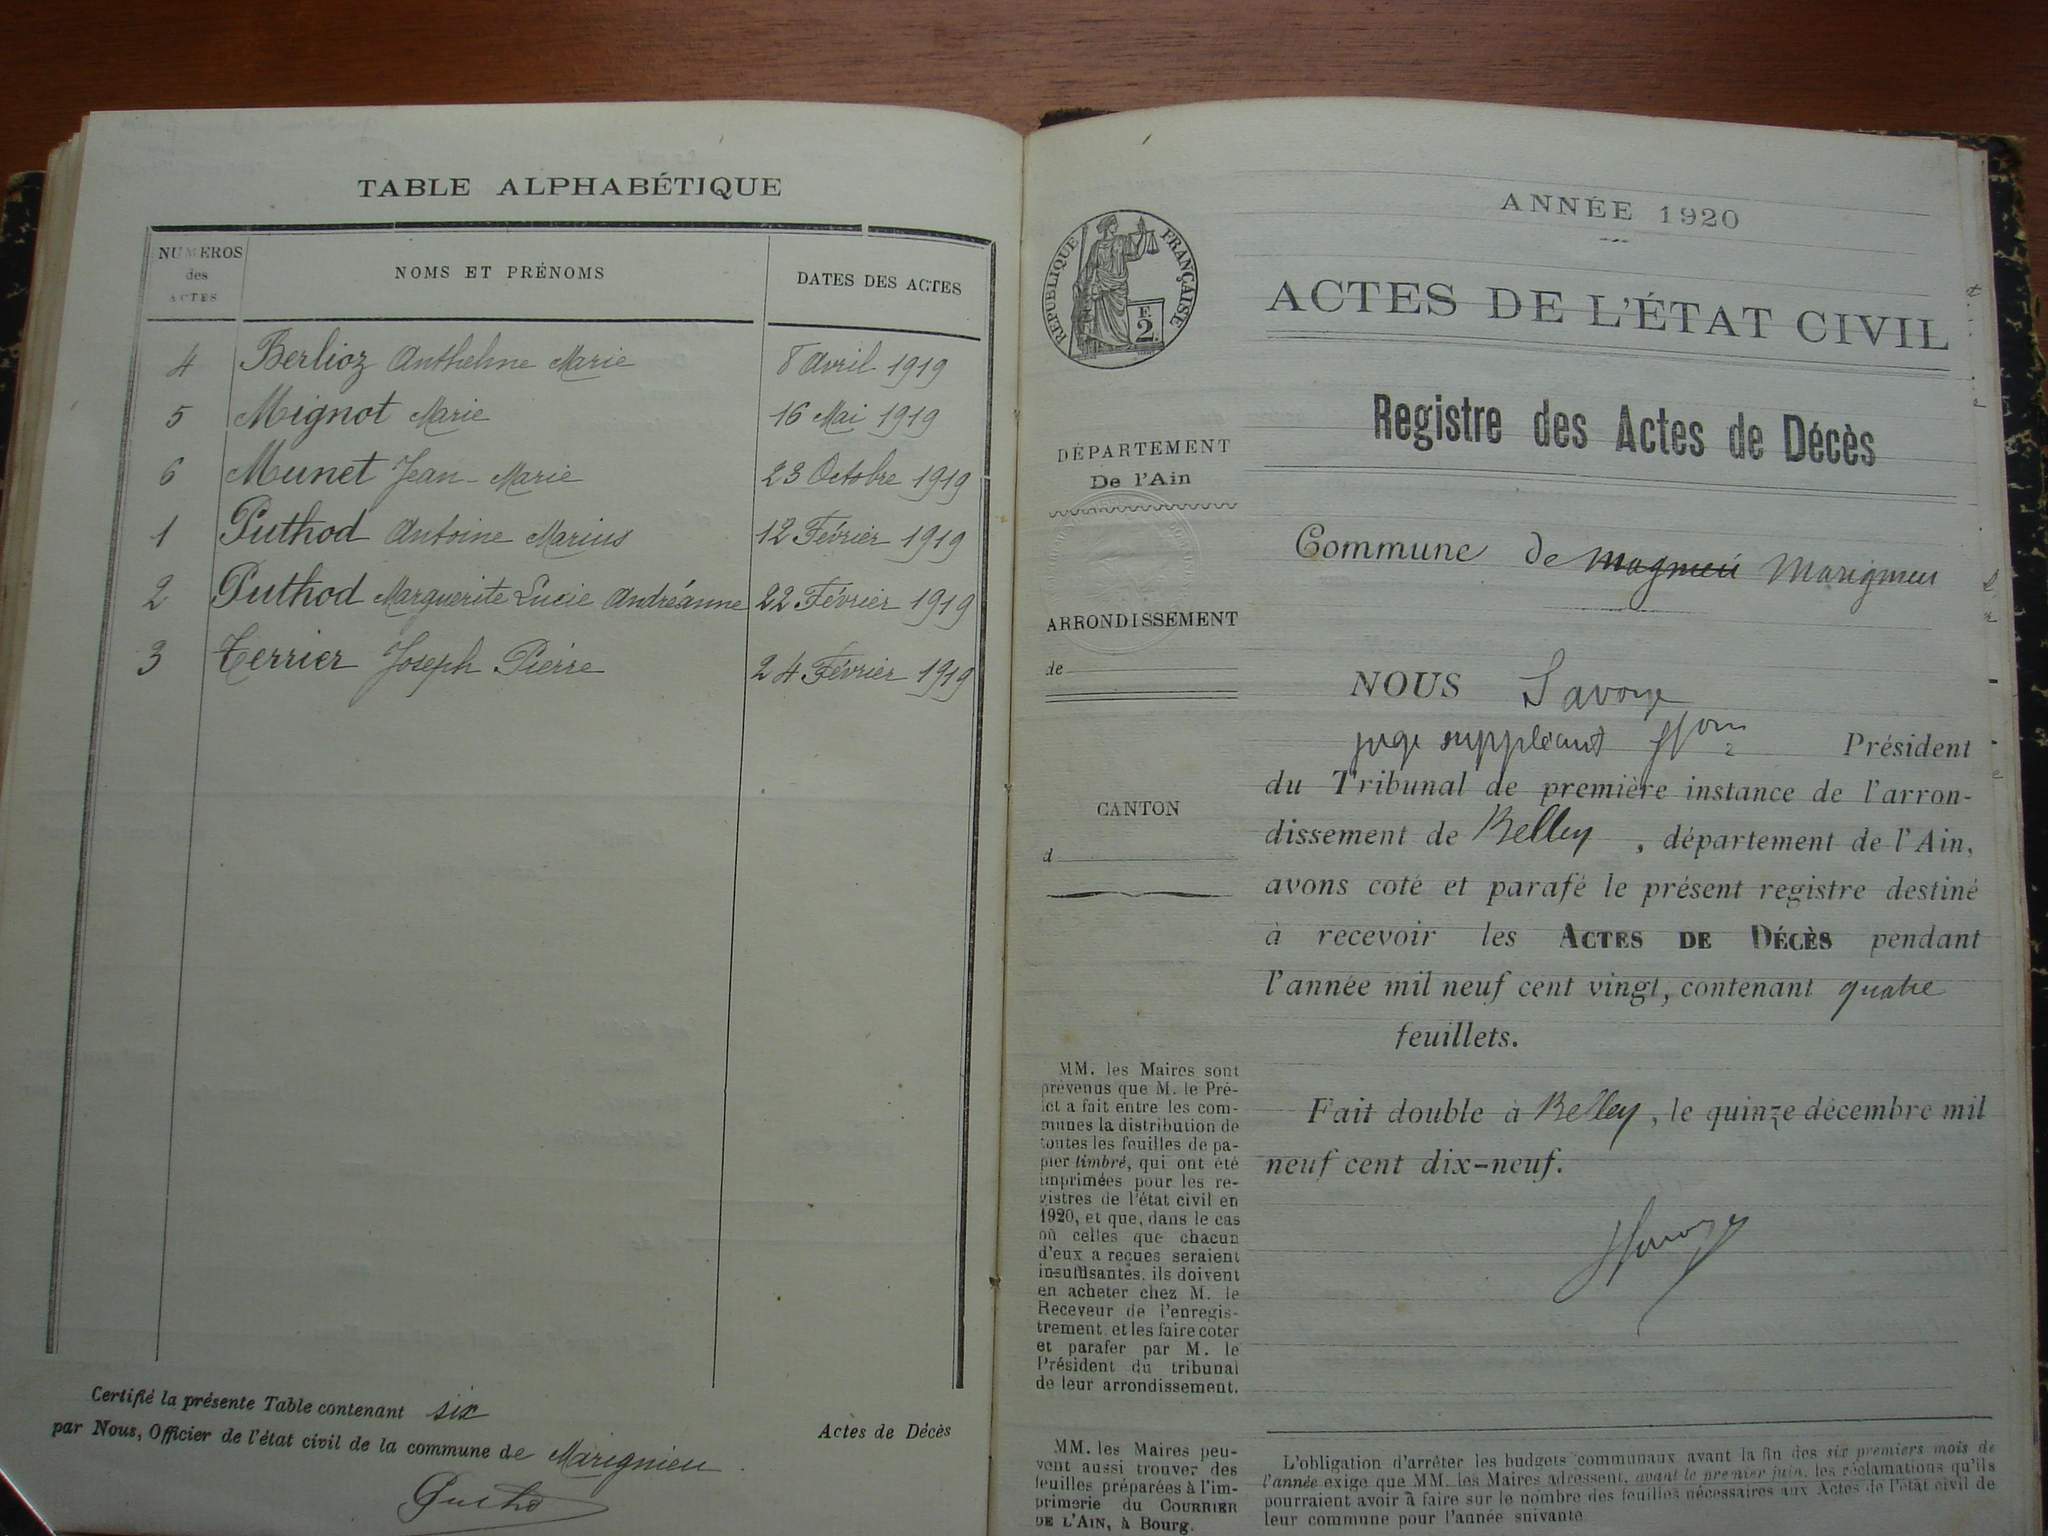 TABLE ALPHABÉTIQUE
NUMEROS des ACTES
NOMS ET PRÉNOMS
DATES DES ACTES
4 Berlioz Anthelme Marie 8 Avril 1919
5 Mignot Marie 16 Mai 1919
6 Munet Jean-Marie 23 Octobre 1919
1 Puthod Antoine Marius 12 Février 1919
2 Puthod Marguerite Lucie Andréanne 22 Février 1919
3 Terrier Joseph Pierre 24 Février 1919
Certifié la présente Table contenant six Actes de Décès
par Nous, Officier de l'état civil de la commune de Marignieu.
ANNÉE 1920
RÉPUBLIQUE FRANÇAISE
F. 2.
ACTES DE L'ÉTAT CIVIL
Registre des Actes de Décès
DÉPARTEMENT
De l'Ain
Commune de Magnieu Marignieu
ARRONDISSEMENT
de
CANTON
d
NOUS Savoye
juge suppléant Président
du Tribunal de première instance de l'arron-
dissement de Belley, département de l'Ain,
avons coté et parafé le présent registre destiné
à recevoir les ACTES DE DÉCÈS pendant
l'année mil neuf cent vingt, contenant quatre
feuillets.
Fait double à Belley, le quinze décembre mil
neuf cent dix-neuf.
MM. les Maires sont
prévenus que M. le Pré-
fet a fait entre les com-
munes la distribution de
toutes les feuilles de pa-
pier timbré, qui ont été
imprimées pour les re-
gistres de l'état civil en
1920, et que, dans le cas
où celles que chacun
d'eux a reçues seraient
insuffisantes, ils doivent
en acheter chez M. le
Receveur de l'enregis-
trement, et les faire coter
et parafer par M. le
Président du tribunal
de leur arrondissement.
MM. les Maires peu-
vent aussi trouver des
feuilles préparées à l'im-
primerie du COURRIER
DE L'AIN, à Bourg.
L'obligation d'arrêter les budgets communaux avant la fin des six premiers mois de
l'année exige que MM. les Maires adressent, avant le premier juin, les réclamations qu'ils
pourraient avoir à faire sur le nombre des feuilles nécessaires aux Actes de l'état civil de
leur commune pour l'année suivante